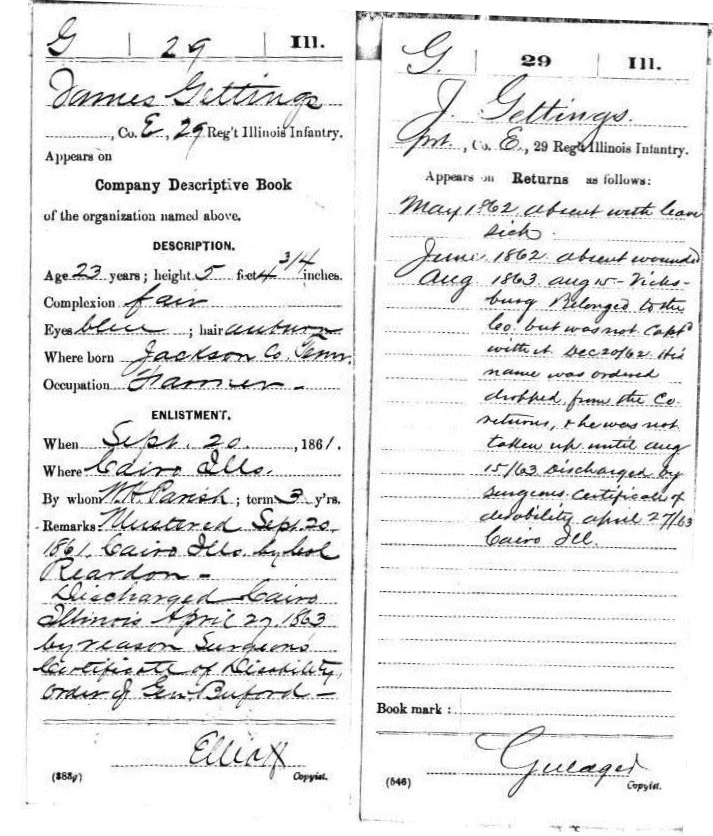 G | 29 | Ill.
James Gettings
, Co. E, 29 Reg't Illinois Infantry.
Appears on
Company Descriptive Book
of the organization named above.
DESCRIPTION.
Age 23 years; height 5 feet 4 3/4 inches.
Complexion fair
Eyes blue ; hair auburn
Where born Jackson Co. Tenn.
Occupation Farmer -
ENLISTMENT.
When Sept. 20. , 1861.
Where Cairo Ills.
By whom W.H. Parish; term 3 y'rs.
Remarks Mustered Sept. 20.
1861. Cairo Ills by Col
Reardon -
Discharged Cairo
Illinois April 27. 1863
by reason Surgeons
Certificate of Disability,
order of Gen. Buford -
Elliott
Copyist.
G. | 29 | Ill.
J. Gettings.
prt. , Co. E., 29 Reg't Illinois Infantry.
Appears on Returns as follows:
May 1862 absent with leave
sick.
June 1862 absent wounded
Aug 1863 aug 15 - Vicks-
burg Belonged to the
Co. but was not Capt'd
with it Dec 20/62. His
name was ordered
dropped from the Co.
returns, & he was not
taken up until aug
15/63 Discharged by
surgeons certificate of
disability april 27/63
Cairo Ill.
Book mark :
(546) Copyist.